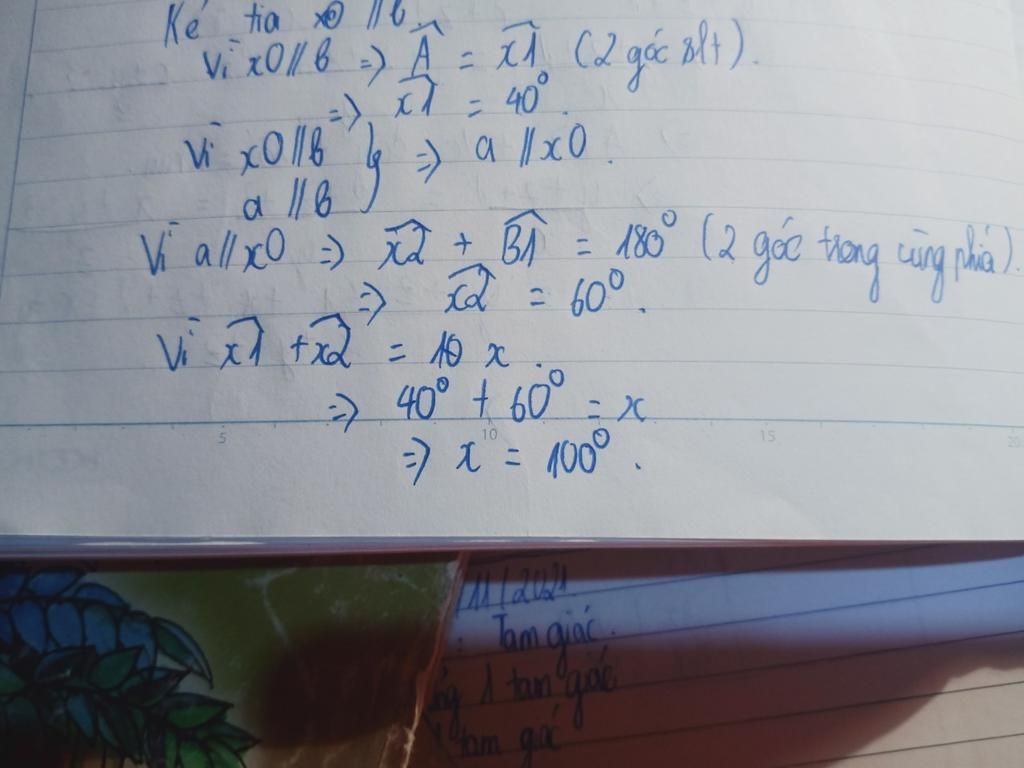 Kẻ tia xO // b.
Vì xO // b => Â = x1 (2 góc slt).
=> x1 = 40°.
Vì xO // b } => a // xO.
a // b
Vì a // xO => x2 + B1 = 180° (2 góc trong cùng phía).
=> x2 = 60°.
Vì x1 + x2 = x.
=> 40° + 60° = x
5 10 15 20
=> x = 100°.
/11/2021.
: Tam giác.
1 tam giác
tam gác